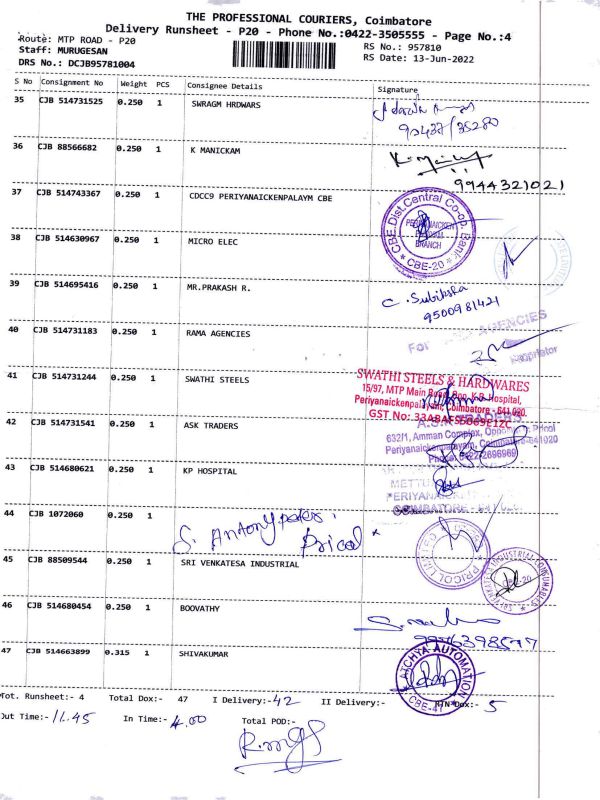 THE PROFESSIONAL COURIERS, Coimbatore
Delivery Runsheet - P20 - Phone No.:0422-3505555 - Page No.:4
Route: MTP ROAD - P20
RS No.: 957810
Staff: MURUGESAN
RS Date: 13-Jun-2022
DRS No.: DCJB95781004
S No Consignment No Weight PCS Consignee Details Signature
35 CJB 514731525 0.250 1 SWRAGM HRDWARS
90437/35280
36 CJB 88566682 0.250 1 K MANICKAM
9944321021
37 CJB 514743367 0.250 1 CDCC9 PERIYANAICKENPALAYM CBE
CBE.Dist.Central Co-op. Bank
BRANCH
* CBE-20 *
38 CJB 514630967 0.250 1 MICRO ELEC
39 CJB 514695416 0.250 1 MR.PRAKASH R.
C. Subiksha
9500981421
40 CJB 514731183 0.250 1 RAMA AGENCIES
For AGENCIES
Proprietor
41 CJB 514731244 0.250 1 SWATHI STEELS
SWATHI STEELS & HARDWARES
15/97, MTP Main Road, Opp. K.P. Hospital,
Periyanaickenpalayam, Coimbatore - 641 020.
GST No: 33ABAFS5069E1ZC
42 CJB 514731541 0.250 1 ASK TRADERS
A.S.K. TRADERS
632/1, Amman Complex, Opp Pricol
Periyanaickenpalayam, Coimbatore-641020
43 CJB 514680621 0.250 1 KP HOSPITAL
METTU
PERIYANAICKEN
COIMBATORE - 641 020.
44 CJB 1072060 0.250 1
Pricol
PRICOL LIMITED
45 CJB 88509544 0.250 1 SRI VENKATESA INDUSTRIAL
SRI VENKATESA INDUSTRIAL CONSUMABLES
46 CJB 514680454 0.250 1 BOOVATHY
47 CJB 514663899 0.315 1 SHIVAKUMAR
LATCHYA AUTOMATION
CBE-47
Tot. Runsheet:- 4 Total Dox:- 47 I Delivery:- 42 II Delivery:- Dox:- 5
Out Time:- 11.45 In Time:- 4.00 Total POD:-